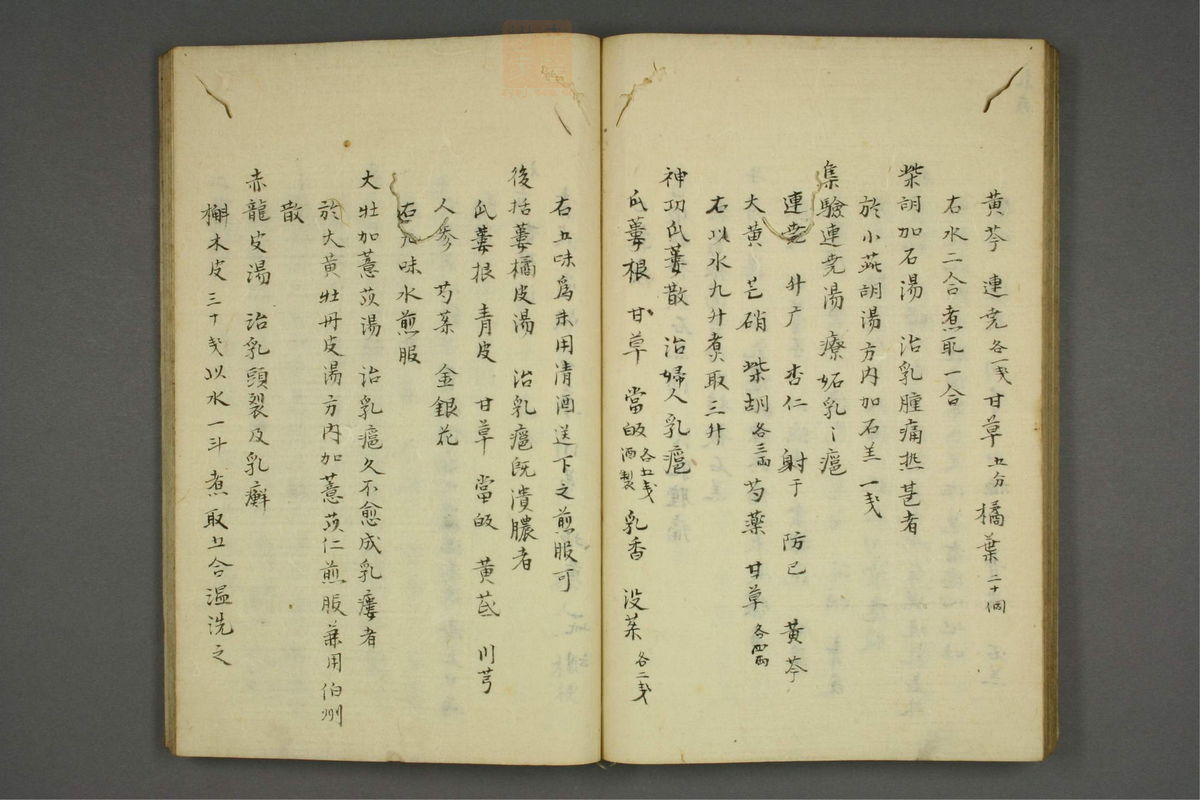 黄芩 連壳各一戋甘草五分橘葉二十個
右水二合煮取一合
柴胡加石湯 治乳腫痛熱甚者
於小茈胡湯方内加石羔一戋
集驗連壳湯療妬乳〻癰
連壳 升广 杏仁 射干 防已 黄芩
大黄 芒硝 柴胡各三両芍藥 甘草各四両
右以水九升煮取三升
神功瓜蔞散 治婦人乳癰
瓜蔞根 甘草 當皈各五戋酒製乳香 没薬各二戋
右五味為末用清酒送下之煎服可
後括蔞橘皮湯 治乳癰既潰膿者
瓜蔞根 青皮 甘草 當皈 黄茋 川芎
人参 芍薬 金銀花
右九味水煎服
大牡加薏苡湯 治乳癰久不愈成乳瘻者
於大黄牡丹皮湯方内加薏苡仁煎服兼用伯州
散
赤龍皮湯 治乳頭裂及乳癬
槲木皮三十戋以水一斗煮取五合温洗之